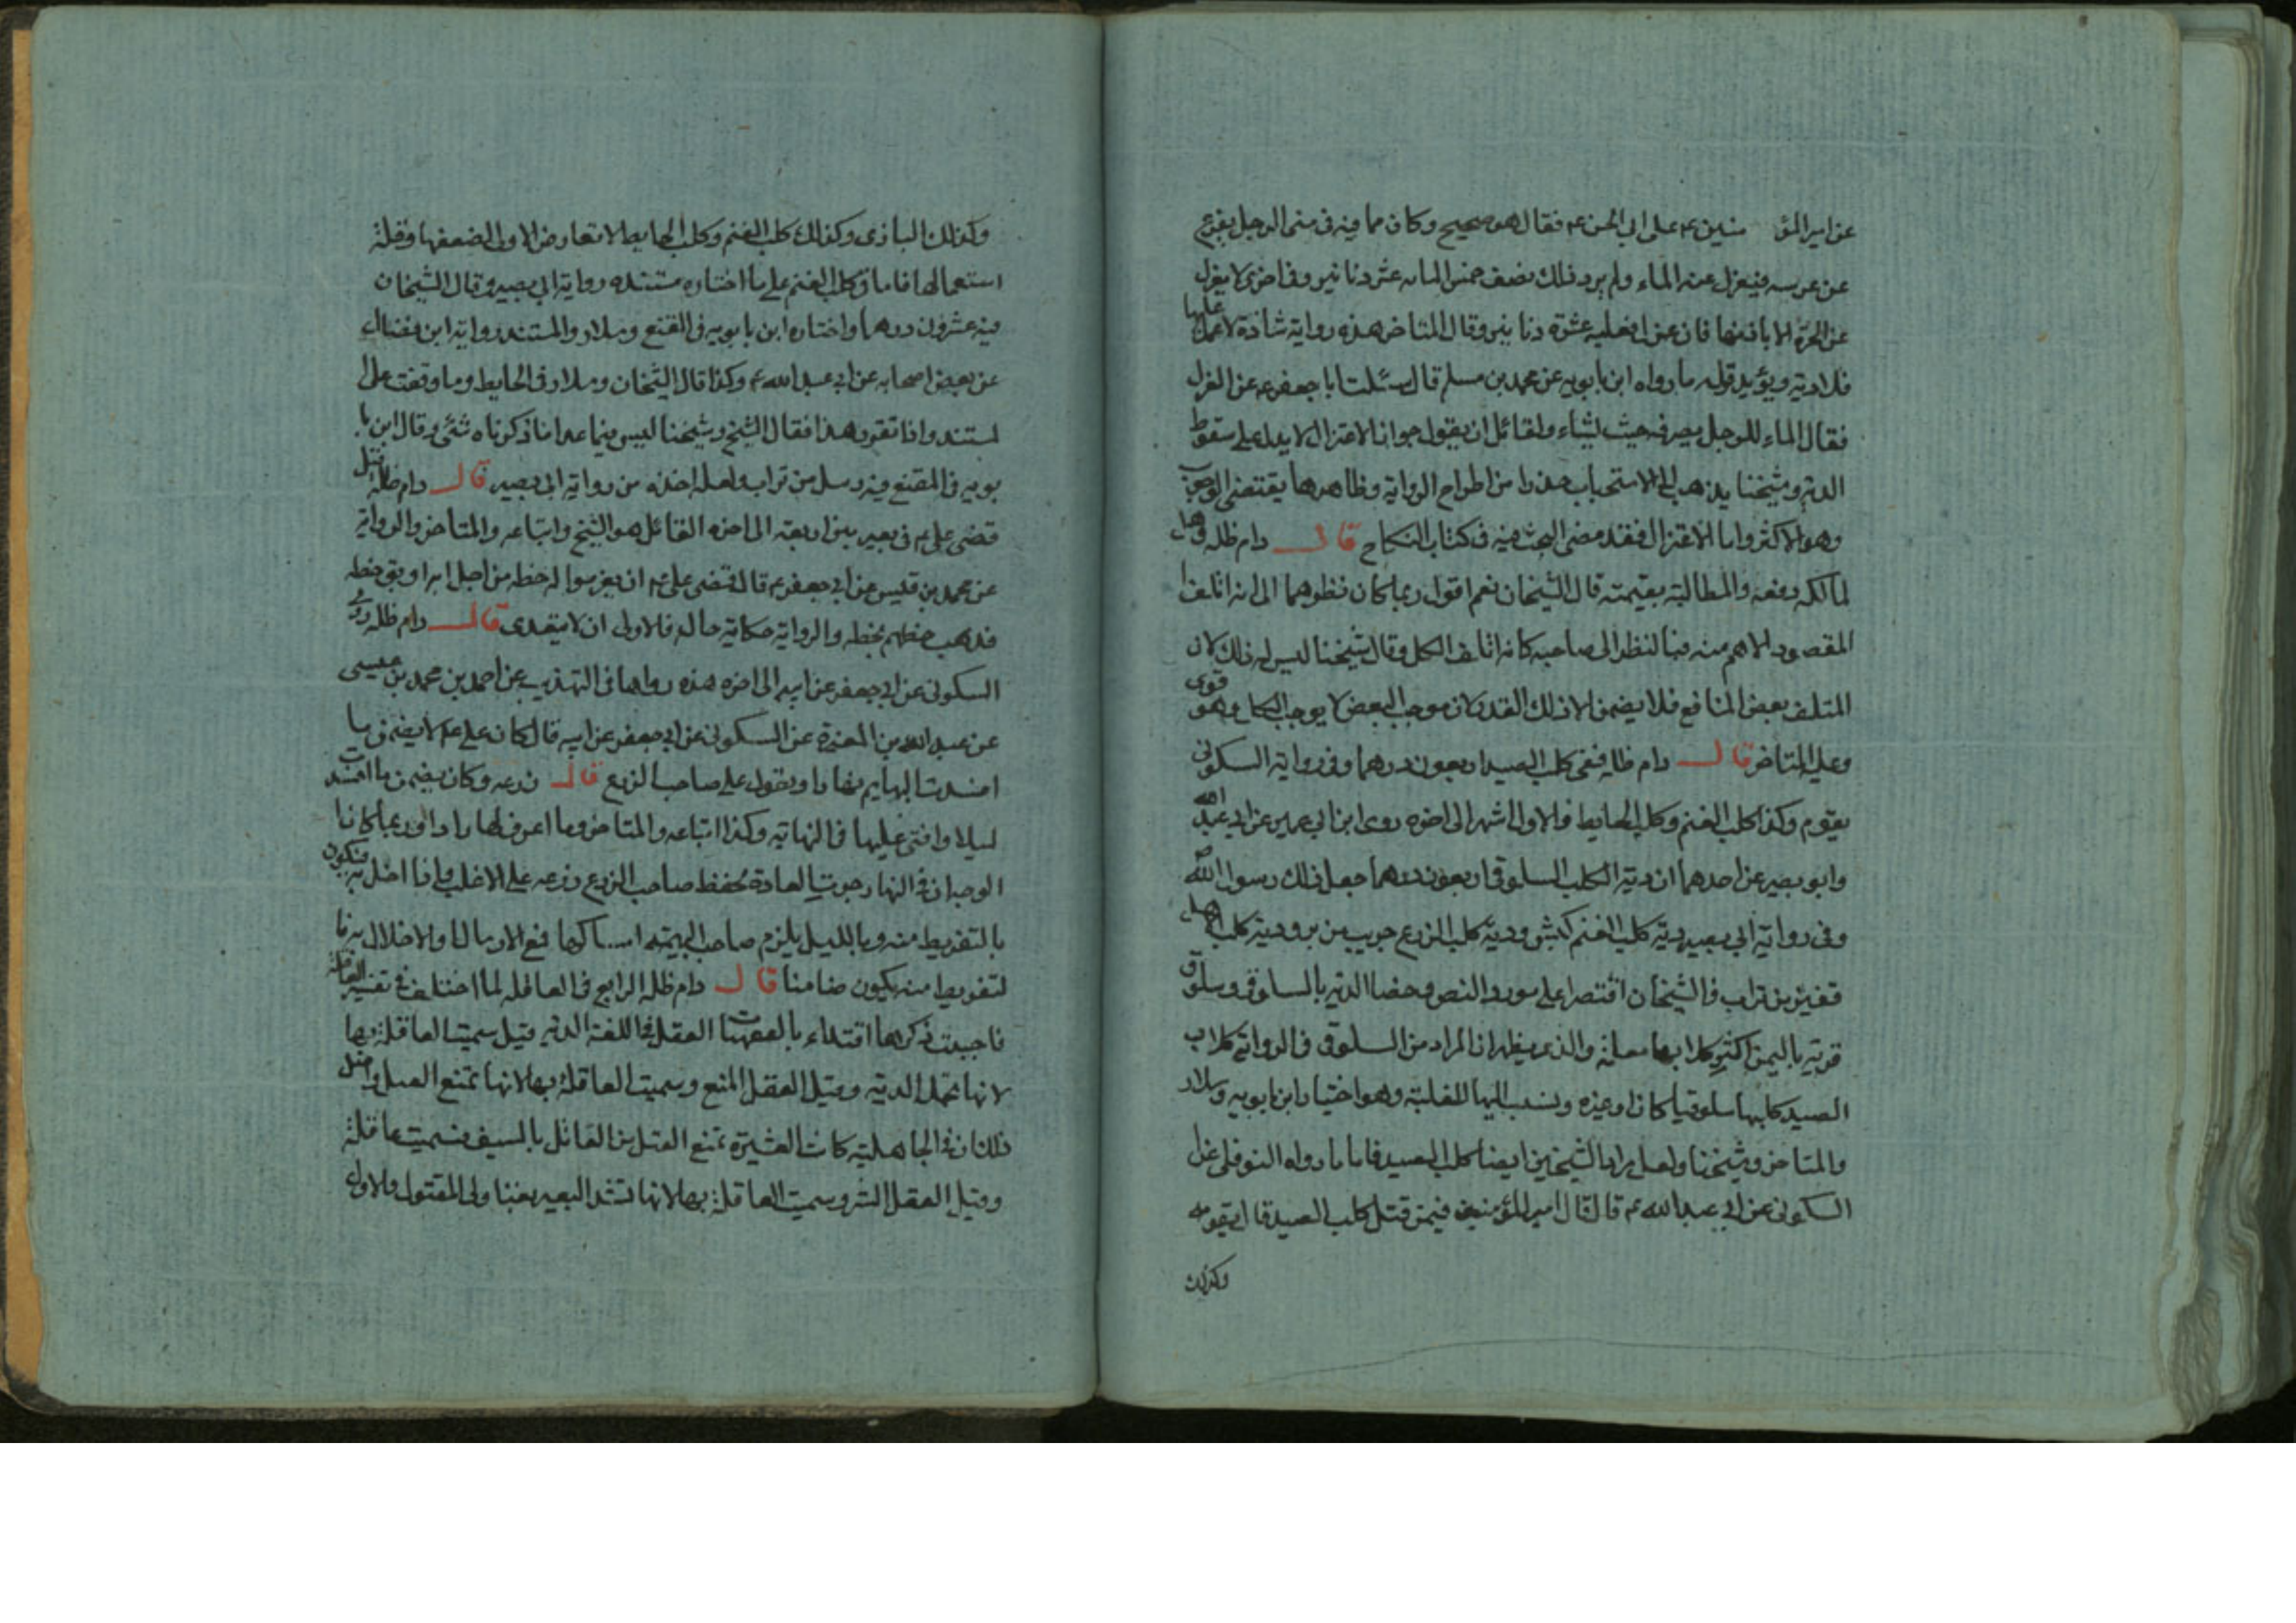 عن امير المؤ منين ع على ابى الحسن ع فقال هو صحيح وكان مما فيه فى منى الرجل يفزع
عن عرسه فيعزل عنه الماء ولم يرد ذلك نصف خمس المائه عشر دنانير وفى اخرى لا يعزل
عن الحرة الا باذنها فان عزل فعليه عشرة دنانير وقال المتاخر هذه رواية شاذة لا عمل عليها
فلا دية ويؤيد قوله ما رواه ابن بابويه عن محمد بن مسلم قال سئلت ابا جعفر ع عن العزل
فقال الماء للرجل يصرفه حيث يشاء ولقائل ان يقول جواز الاعتزال لا يدل على سقوط
الدية وشيخنا يذهب الى الاستحباب حذرا من اطراح الرواية وظاهرها يقتضى الوجوب
وهو الاكثر واما الاعتزال فقد مضى البحث فيه فى كتاب النكاح قال دام ظله وهل
لمالكه دفعه والمطالبة بقيمته قال الشيخان نعم اقول ربما كان نظرهما الى انه اتلف
المقصود الاهم منه فبالنظر الى صاحبه كانه اتلف الكل وقال شيخنا ليس له ذلك لان
المتلف بعض المنافع فلا يضمن الا ذلك القدر لان موجب البعض لا يوجب الكل وهو قوى
وعليه المتاخر قال دام ظله ففى كلب الصيد اربعون درهما وفى رواية السكونى
يقوم وكذا كلب الغنم وكلب الحايط والاول اشهر الى اخره روى ابن ابى عمير عن ابى عبد الله
وابو بصير عن احدهما ان دية الكلب السلوقى اربعون درهما جعل ذلك رسول الله ص
وفى رواية ابى بصير دية كلب الغنم كبش ودية كلب الزرع جريب من بر ودية كلب الاهل
قفيز من تراب فالشيخان اقتصرا على مورد النص وخصا الدية بالسلوقى وسلوق
قرية باليمن اكثر كلابها معلمة والذى يظهر ان المراد من السلوقى فى الرواية كلاب
الصيد كلها سلوقيا كان او غيره ونسب اليها للغلبة وهو اختيار ابن بابويه وسلار
والمتاخر وشيخنا ولعل مراد الشيخين ايضا كلب الصيد فاما ما رواه النوفلى عن
السكونى عن ابى عبد الله ع قال قال امير المؤمنين فيمن قتل كلب الصيد قال يقومه
وكذلك
وكذلك البازى وكذلك كلب الغنم وكلب الحايط لا تعارض الاولى لضعفها وقلة
استعمالها فاما فى كلب الغنم على ما اختاره مستنده رواية ابى بصير وقال الشيخان
فيه عشرون درهما واختاره ابن بابويه فى المقنع وسلار والمستند رواية ابن فضال
عن بعض اصحابه عن ابى عبد الله ع وكذا قال الشيخان وسلار فى الحايط وما وقفت على
مستند واذا تقرر هذا فقال الشيخ وشيخنا ليس فيما عدا ما ذكرناه شئ وقال ابن با
بويه فى المقنع فيه زبيل من تراب ولعله اخذه من رواية ابى بصير قال دام ظله قيل
قضى على ع فى بعير بين اربعة الى اخره القائل هو الشيخ واتباعه والمتاخر والرواية
عن محمد بن قيس عن ابى جعفر ع قال قضى على ع ان يغرموا له حظه من اجل انه اوثق حظه
فذهب حظهم بحظه والرواية حكاية حال فالاولى ان لا يتعدى قال دام ظله روى
السكونى عن ابى جعفر عن ابيه الى اخره هذه رواها فى التهذيب عن احمد بن محمد بن عيسى
عن عبد الله بن المغيرة عن السكونى عن ابى جعفر عن ابيه قال كان على ع لا يضمن ما
افسدت البهايم نهارا ويقول على صاحب الزرع قال زرعه وكان يضمن ما افسدت
ليلا وافتى عليها فى النهاية وكذا اتباعه والمتاخر وما اعرف لها رادا وربما كانا
الوجه ان فى النهار جرت العادة بحفظ صاحب الزرع زرعه على الاغلب فاذا اخل به فيكون
بالتفريط منه وبالليل يلزم صاحب البهيمة امساكها فمع الارسال والاخلال به فا
لتفريط منه يكون ضامنا قال دام ظله الرابع فى العاقلة لما اختلف فى تفسير العاقلة
فاحببت ذكرها اقتداء بالفقهاء العقل فى اللغة الدية قيل سميت العاقلة بها
لانها تحمل الدية وقيل العقل المنع وسميت العاقلة بها لانها تمنع القتل واصل
ذلك ان فى الجاهلية كانت العشيرة تمنع القتل من القاتل بالسيف فسميت عاقلة
وقيل العقل الشد وسميت العاقلة بها لانها تشد البعير بفنا ولى المقتول والاول